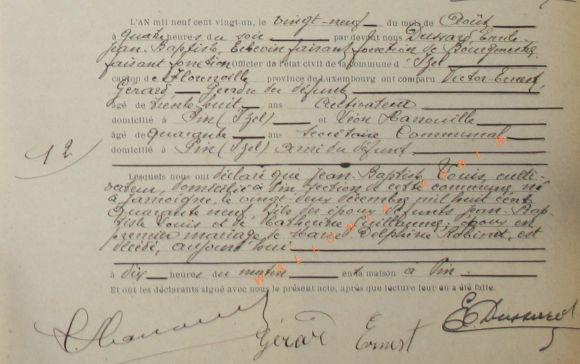 L'AN mil neuf cent vingt-un, le vingt-neuf du mois de Août
à quatre heures du soir par devant nous Dussard Emile
Jean-Baptiste, Echevin faisant fonction de Bourgmestre,
faisant fonction Officier de l'état civil de la commune d' Izel
canton de Florenville province de Luxembourg ont comparu Victor-Ernest
Gérard Gendre du défunt
âgé de trente huit ans cultivateur
domicilié à Pin (Izel) et Léon Hanouille
âgé de quarante ans Secrétaire Communal
domicilié à Pin (Izel) Ami du défunt
12
Lesquels nous ont déclaré que Jean-Baptiste Louis, culti-
vateur, domicilié à Pin section de cette commune, né
à Jamoigne, le vingt-deux décembre mil huit cent
quarante neuf, fils des époux défunts Jean-Bap-
tiste Louis et de Catherine Guillaume, époux en
première mariage de Marie Delphine, est
décédé, aujourd'hui
à dix heures du matin en sa maison à Pin.
Et ont les déclarants signé avec nous le présent acte, après que lecture leur en a été faite.
Gérard Ernest
E Dussard